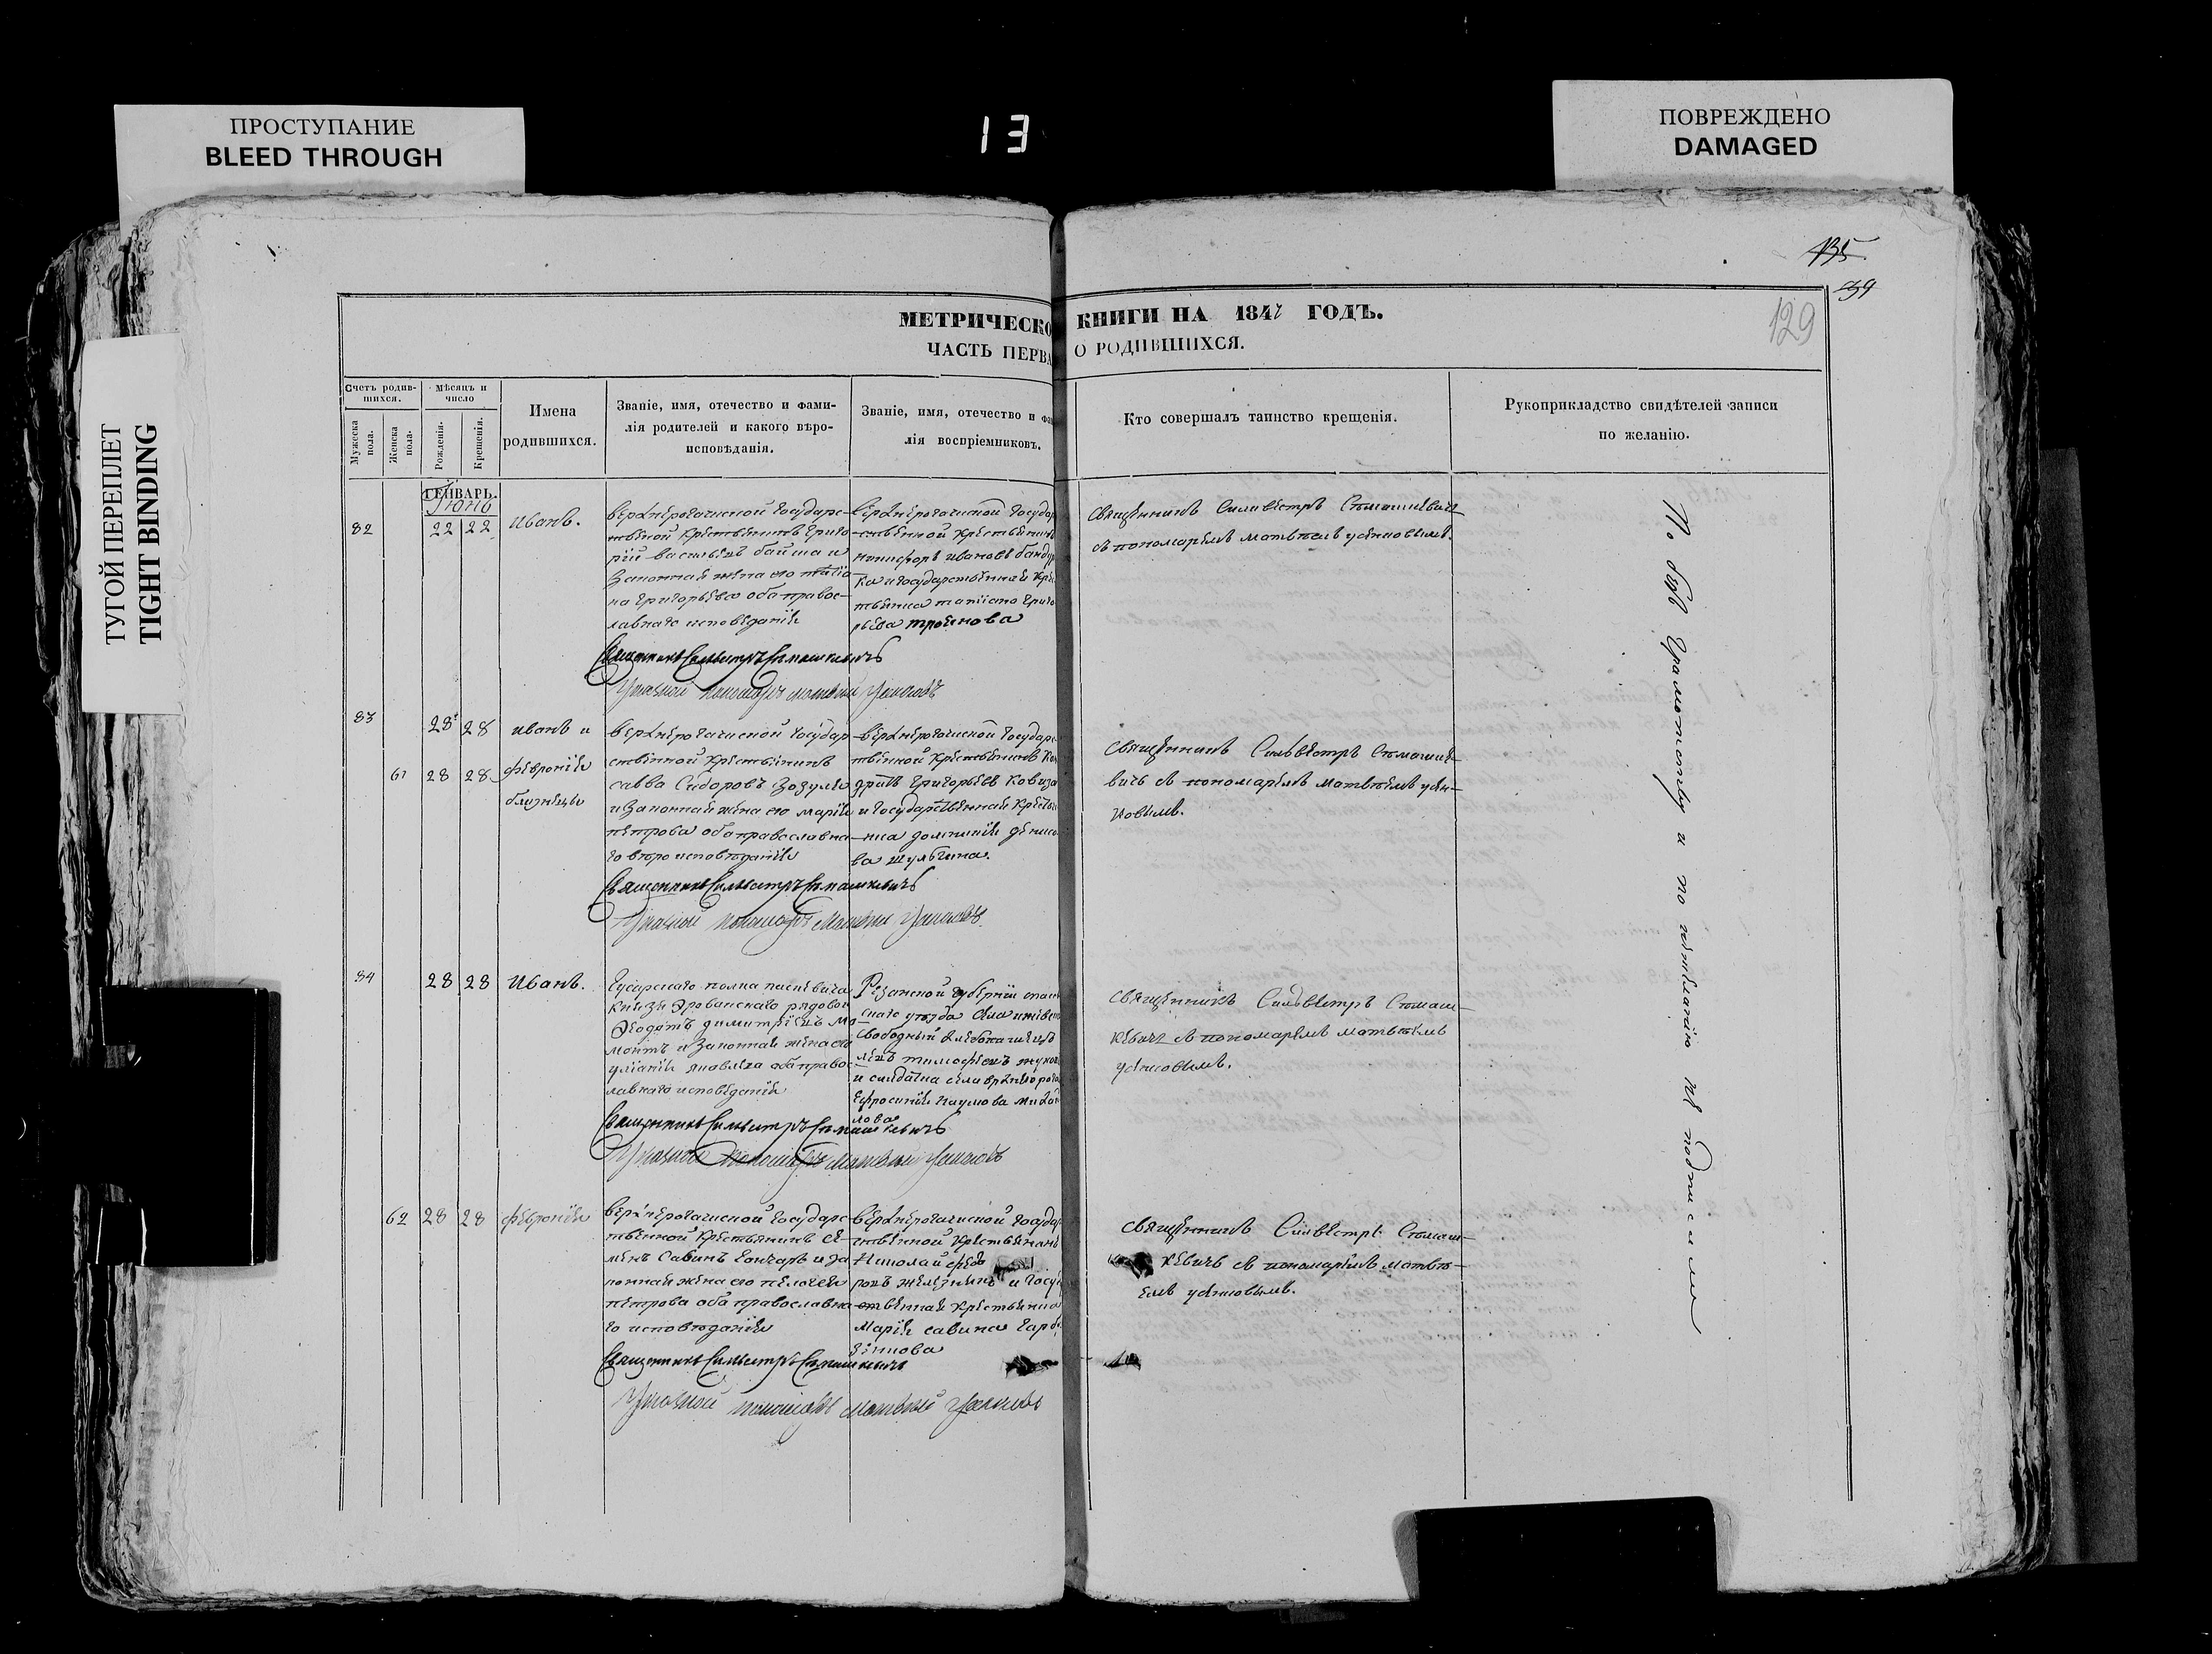 ПРОСТУПАНИЕ
BLEED THROUGH
13
ПОВРЕЖДЕНО
DAMAGED
ТУГОЙ ПЕРЕПЛЕТ
TIGHT BINDING
135
39
129
МЕТРИЧЕСКО КНИГИ НА 1847 ГОДЪ.
ЧАСТЬ ПЕРВА О РОДИВШИХСЯ.
Счетъ родив-
шихся.
Мужеска
пола.
Женска
пола.
Мѣсяцъ и
число
Рожденія.
Крещенія.
Имена
родившихся.
Званіе, имя, отечество и фами-
лія родителей и какого вѣро-
исповѣданія.
Званіе, имя, отечество и фа
лія воспріемниковъ.
Кто совершалъ таинство крещенія.
Рукоприкладство свидѣтелей записи
по желанію.
ГЕНВАРЬ.
Іюнь
82
22 22
Иванъ.
Верхнерогачиской государс-
твеной крестьянинъ Григо
рій Васильевъ
законная жена его Татіа
на Григорьева оба правос-
лавнаго исповеданія
Верхнерогачиской государ
ственной крестьянинъ
Никифоръ Ивановъ Банду
ка и государственная кре
тьянка Татіана Григо
рьева Троянова
Священникъ Сильвестръ Семашкевичъ
съ пономаремъ Матвѣемъ Усиковымъ.
Священникъ Сильвестръ Семашкевичъ
Указной пономарь Матвей Усиковъ
83
28 28
Иванъ и
61 28 28
Февронія
близнецы
Верхнерогачиской государ
ственной крестьянинъ
Савва Сидоровъ Зозуля
и законная жена его Марія
Петрова оба православна
го вероисповѣданія
Верхнерогачиской государс
твенной крестьянинъ Кон
дратъ Григорьевъ Ковиза
и государственная кресть
нка Домникія Дениси
ва Шульгина.
Священникъ Сильвестръ Семашке-
вичъ съ пономаремъ Матвѣемъ Уси-
ковымъ.
Священникъ Сильвестръ Семашкевичъ
Указной пономарь Матвей Усиковъ.
84
28 28
Иванъ.
Гусарскаго полка Паскевича
Князя Эриванскаго рядовой
Феодотъ Димитріевъ
и законная жена его
Уліанія Яковлева оба правос-
лавнаго исповеданія
Резанской губерніи Спас
скаго уѣзда села
свободный хлебопашецъ
Тимофеевъ
и солдатка села
Ефросинія Наумова Михай
лова
Священникъ Сильвестръ Семаш-
кевичъ съ пономаремъ Матвѣемъ
Усиковымъ.
Священникъ Сильвестръ Семашкевичъ
Указной пономарь Матвей Усиковъ
62 28 28
Февронія
Верхнерогачиской государс
твенной крестьянинъ Се-
менъ Савинъ Гончаръ и за
конная жена его Пелагея
Петрова оба православна
го исповѣданія
Верхнерогачиской государ
ственной крестьянинъ
Николай Федо
ровъ Железнякъ и госу
ственная крестьянка
Марія Савина Гарбу
зинова
Священникъ Сильвестръ Семаш-
кевичъ съ пономаремъ Матвѣ-
емъ Усиковымъ.
Священникъ Сильвестръ Семашкевичъ
Указной пономарь Матвей Усиковъ
По безграмотству и по желанію не подписали